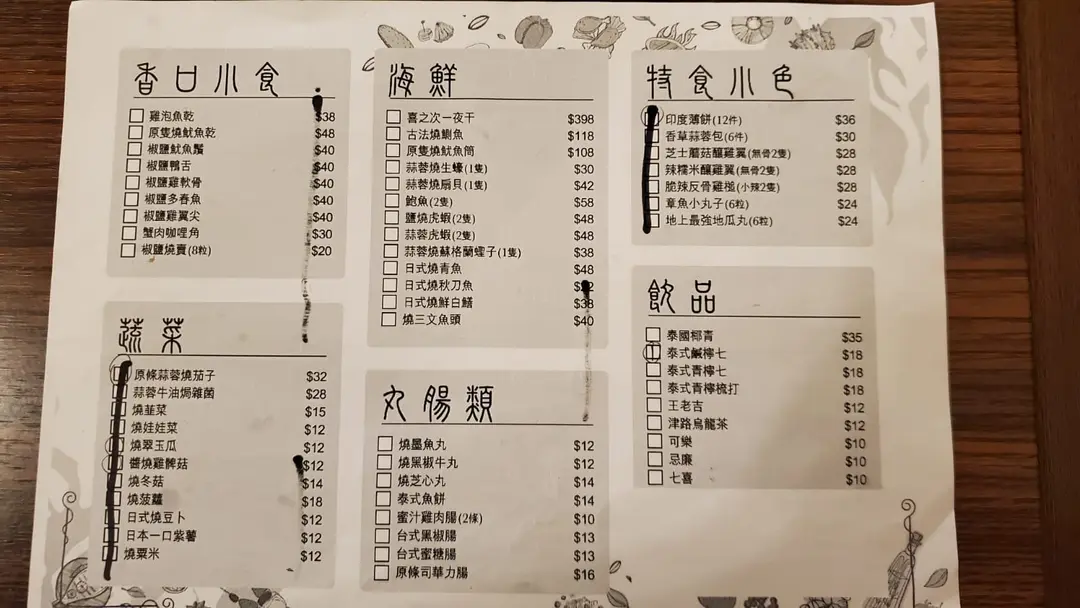 香口小食
雞泡魚乾 $38
原隻燒魷魚乾 $48
椒鹽魷魚鬚 $40
椒鹽鴨舌 $40
椒鹽雞軟骨 $40
椒鹽多春魚 $40
椒鹽雞翼尖 $40
蟹肉咖喱角 $30
椒鹽燒賣(8粒) $20
蔬菜
原條蒜蓉燒茄子 $32
蒜蓉牛油焗雜菌 $28
燒韮菜 $15
燒娃娃菜 $12
燒翠玉瓜 $12
醬燒雞髀菇 $12
燒冬菇 $14
燒菠蘿 $18
日式燒豆卜 $12
日本一口紫薯 $12
燒粟米 $12
海鮮
喜之次一夜干 $398
古法燒鰂魚 $118
原隻燒魷魚筒 $108
蒜蓉燒生蠔(1隻) $30
蒜蓉燒扇貝(1隻) $42
鮑魚(2隻) $58
鹽燒虎蝦(2隻) $48
蒜蓉虎蝦(2隻) $48
蒜蓉燒蘇格蘭蟶子(1隻) $38
日式燒青魚 $48
日式燒秋刀魚
日式燒鮮白鱔 $38
燒三文魚頭 $40
丸腸類
燒墨魚丸 $12
燒黑椒牛丸 $12
燒芝心丸 $14
泰式魚餅 $14
蜜汁雞肉腸(2條) $10
台式黑椒腸 $13
台式蜜糖腸 $13
原條司華力腸 $16
特食小色
印度薄餅(12件) $36
香草蒜蓉包(6件) $30
芝士蘑菇釀雞翼(無骨2隻) $28
辣糯米釀雞翼(無骨2隻) $28
脆辣反骨雞槌(小辣2隻) $28
章魚小丸子(6粒) $24
地上最強地瓜丸(6粒) $24
飲品
泰國椰青 $35
泰式鹹檸七 $18
泰式青檸七 $18
泰式青檸梳打 $18
王老吉 $12
津路烏龍茶 $12
可樂 $10
忌廉 $10
七喜 $10